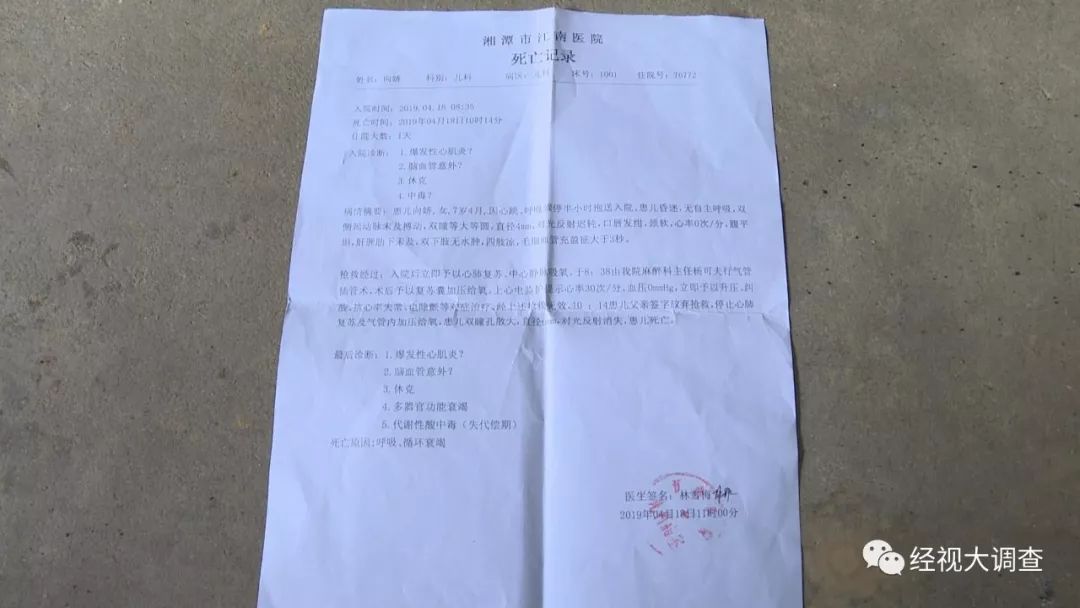 湘潭市江南医院
死亡记录
姓名：向娇 科别：儿科 病区：儿科 床号：1001 住院号：70772
入院时间：2019.04.18 08:35
死亡时间：2019年04月18日10时14分
住院天数：1天
入院诊断：1.爆发性心肌炎？
2.脑血管意外？
3.休克
4.中毒？
病情摘要：患儿向娇，女，7岁4月，因心跳、呼吸骤停半小时抱送入院，患儿昏迷，无自主呼吸，双
侧颈动脉未及搏动，双瞳等大等圆，直径4mm，对光反射迟钝，口唇发绀，颈软，心率0次/分，腹平
坦，肝脾肋下未及，双下肢无水肿，四肢凉，毛细血管充盈征大于3秒。
抢救经过：入院后立即予以心肺复苏、中心静脉吸氧，于8：38由我院麻醉科主任杨可夫行气管
插管术，术后予以复苏囊加压给氧，上心电监护提示心率30次/分，血压0mmHg，立即予以升压、纠
酸、抗心率失常、电除颤等对症治疗，经上述抢救无效，10：14患儿父亲签字放弃抢救，停止心肺
复苏及气管内加压给氧，患儿双瞳孔散大，直径6mm，对光反射消失，患儿死亡。
最后诊断：1.爆发性心肌炎？
2.脑血管意外？
3.休克
4.多器官功能衰竭
5.代谢性酸中毒（失代偿期）
死亡原因：呼吸、循环衰竭
医生签名：林雪梅
2019年04月18日11时00分
经视大调查